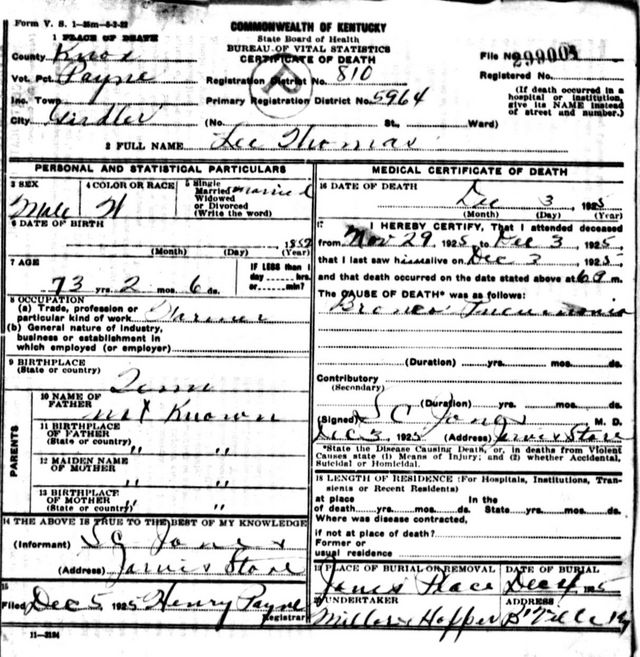 Form V. S. 1-25m-5-2-22
COMMONWEALTH OF KENTUCKY
State Board of Health
BUREAU OF VITAL STATISTICS
CERTIFICATE OF DEATH
1 PLACE OF DEATH
County Knox
Vot. Pct. Payne
Inc. Town
City Girdler
Registration District No. 810
Primary Registration District No. 5964
File No. 29900
Registered No.
(If death occurred in a hospital or institution, give its NAME instead of street and number.)
(No. St., Ward)
2 FULL NAME Lee Thomas
PERSONAL AND STATISTICAL PARTICULARS
3 SEX Male
4 COLOR OR RACE W
5 Single Married Widowed or Divorced (Write the word) Married
6 DATE OF BIRTH
1852
(Month) (Day) (Year)
7 AGE
73 yrs. 2 mos. 6 ds.
IF LESS than 1 day hrs. or min.?
8 OCCUPATION
(a) Trade, profession or particular kind of work Farmer
(b) General nature of industry, business or establishment in which employed (or employer)
9 BIRTHPLACE
(State or country) Tenn
PARENTS
10 NAME OF FATHER not Known
11 BIRTHPLACE OF FATHER (State or country) " "
12 MAIDEN NAME OF MOTHER " "
13 BIRTHPLACE OF MOTHER (State or country) " "
14 THE ABOVE IS TRUE TO THE BEST OF MY KNOWLEDGE
(Informant) S C Jones
(Address) Jarvis Store
15
Filed Dec 5, 1925 Henry Payne
Registrar
11-3184
MEDICAL CERTIFICATE OF DEATH
16 DATE OF DEATH
Dec 3 1925
(Month) (Day) (Year)
17 I HEREBY CERTIFY, That I attended deceased
from Nov 29, 1925, to Dec 3, 1925,
that I last saw him alive on Dec 3, 1925
and that death occurred on the date stated above at 6 a m.
The CAUSE OF DEATH* was as follows:
Bronco Pneumonia
(Duration) yrs. mos. ds.
Contributory
(Secondary)
(Duration) yrs. mos. ds.
(Signed) S C Jones M. D.
Dec 3, 1925 (Address) Jarvis Store
*State the Disease Causing Death, or, in deaths from Violent Causes state (1) Means of Injury; and (2) whether Accidental, Suicidal or Homicidal.
18 LENGTH OF RESIDENCE (For Hospitals, Institutions, Transients or Recent Residents)
at place of death yrs. mos. ds. In the State yrs. mos. ds.
Where was disease contracted,
if not at place of death?
Former or usual residence
19 PLACE OF BURIAL OR REMOVAL DATE OF BURIAL
Jones Place Dec 4 1925
20 UNDERTAKER ADDRESS
Miller & Hopper B'Ville Ky